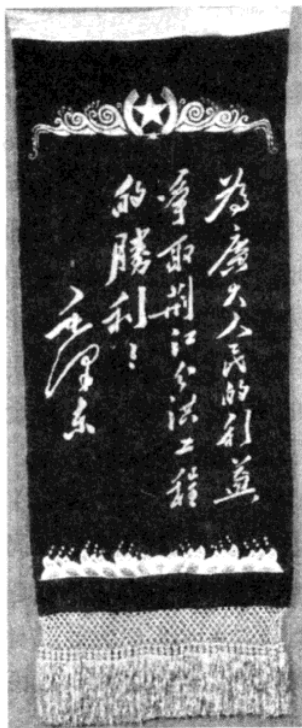 為廣大人民的利益
爭取荆江分洪工程
的勝利！
毛澤东